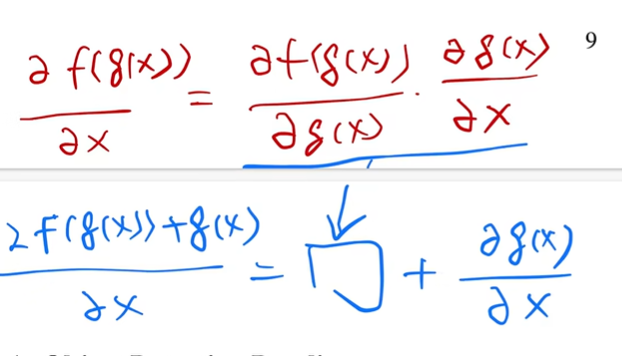 ∂ f(g(x)) / ∂x = ∂f(g(x)) / ∂g(x) · ∂g(x) / ∂x
9
∂f(g(x))+g(x) / ∂x = □ + ∂g(x) / ∂x